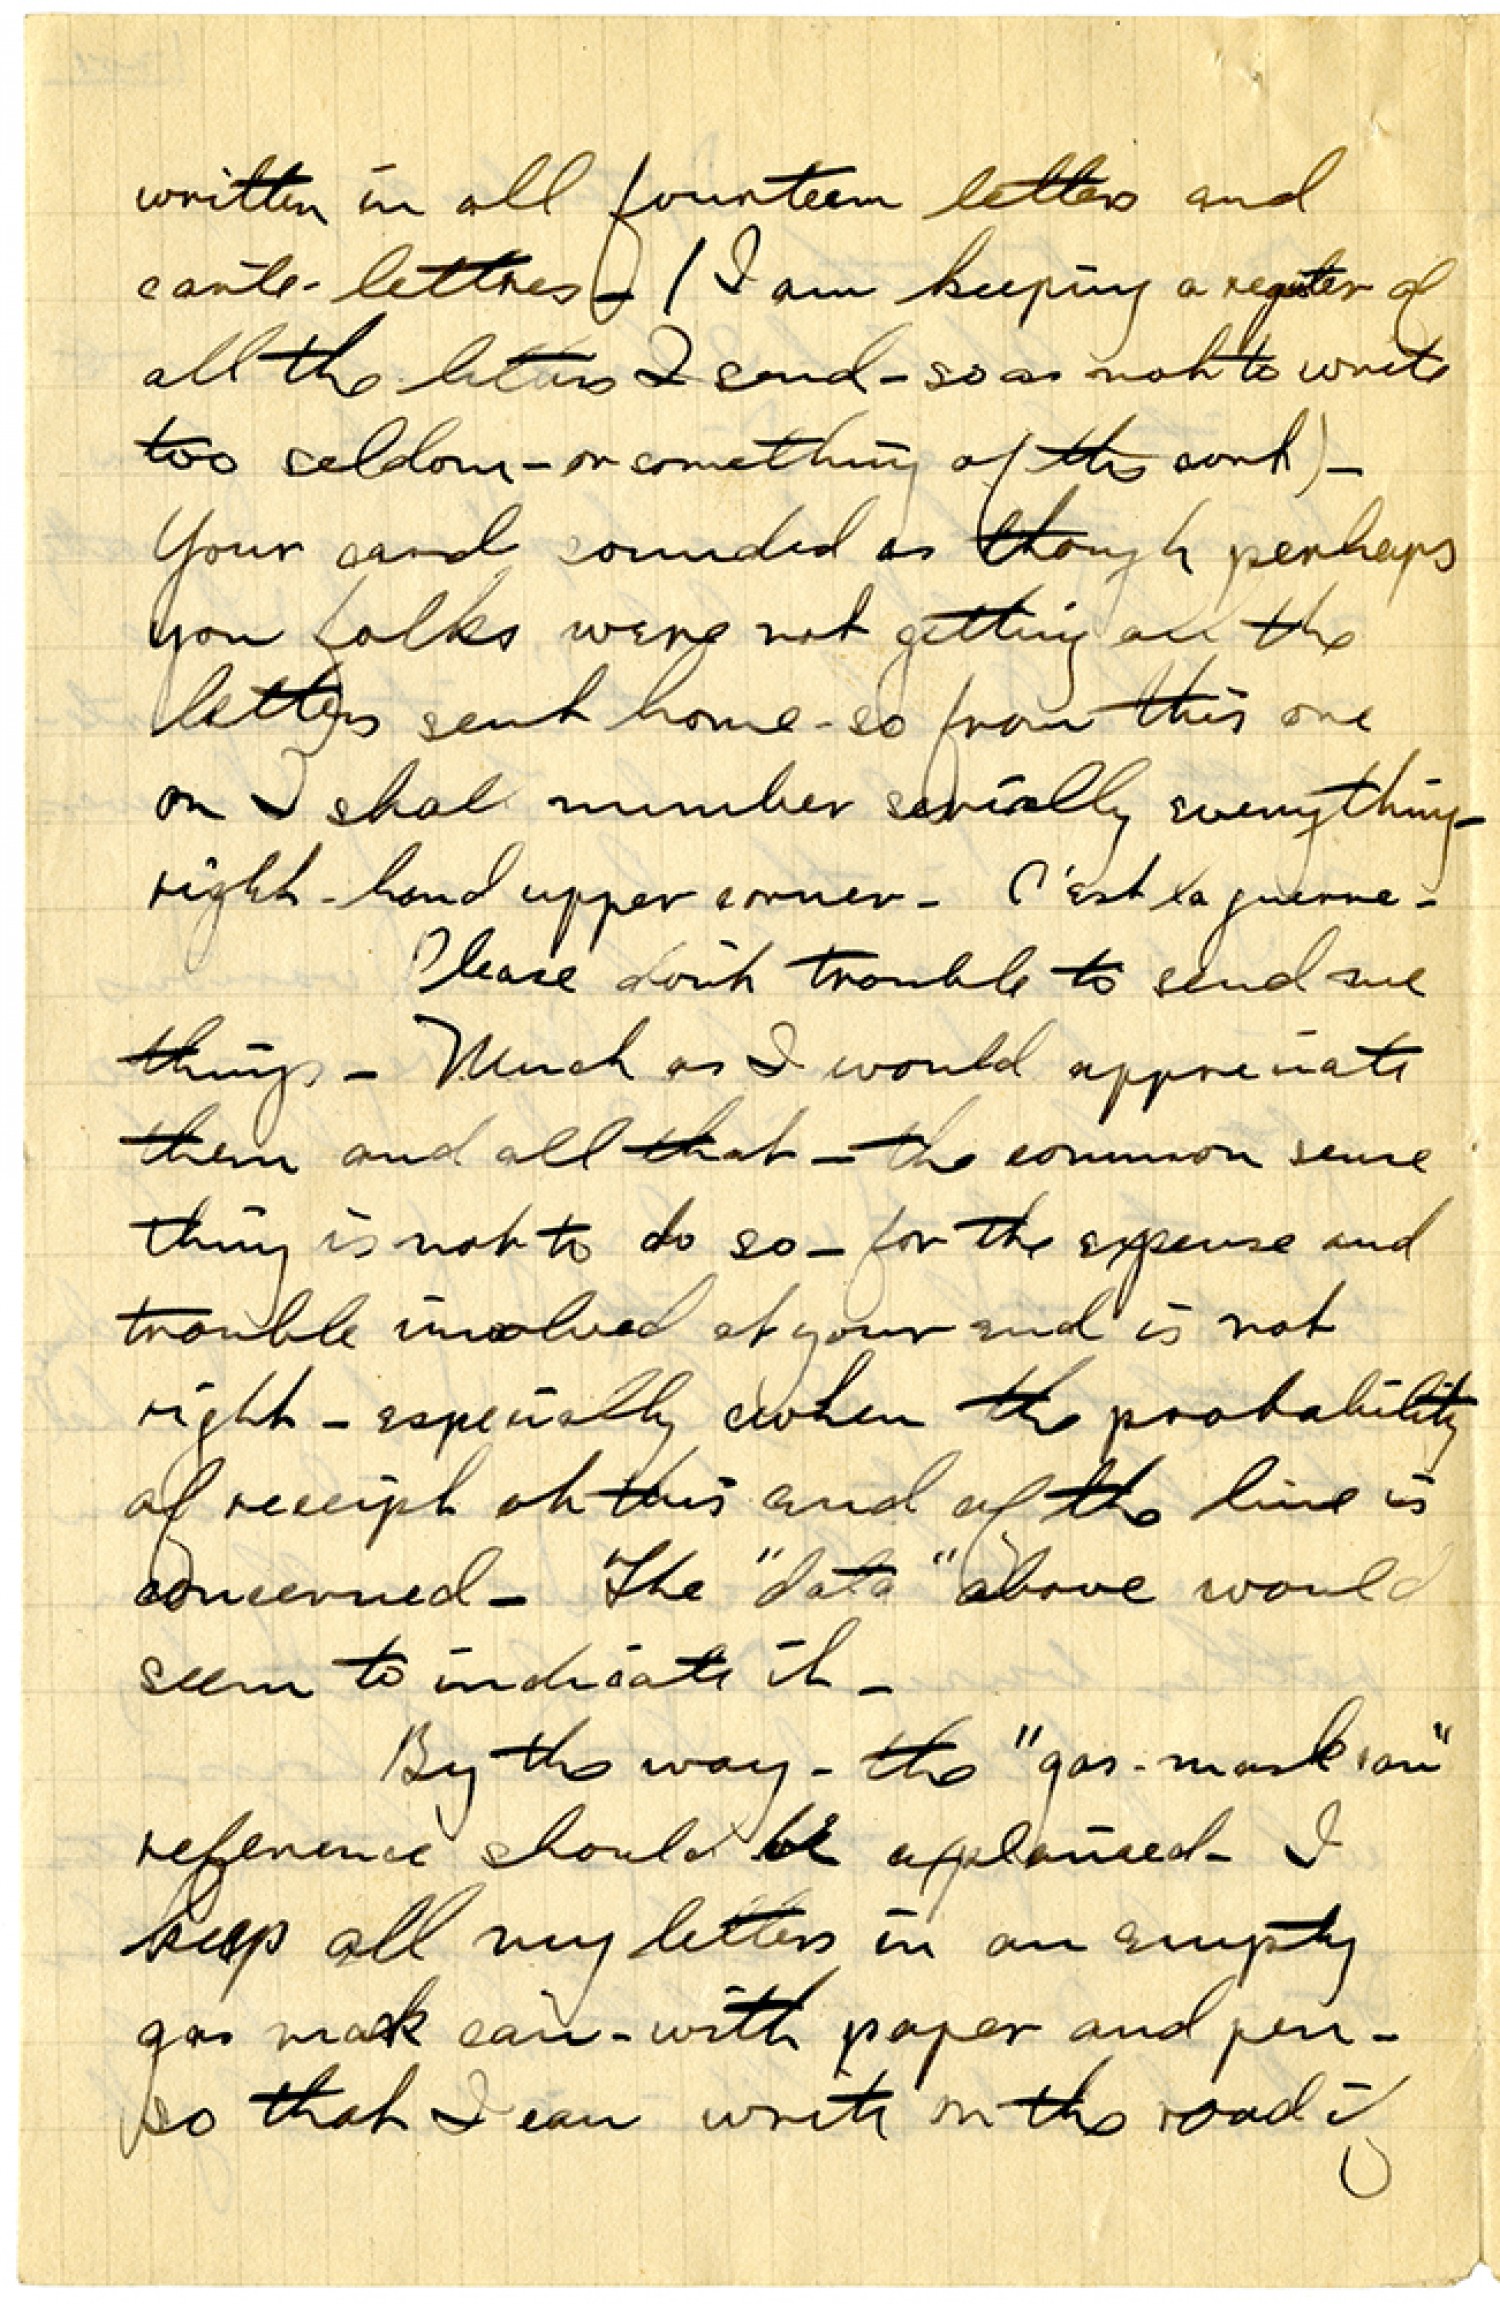 written in all fourteen letters and
carte-lettres - (I am keeping a register of
all the letters I send - so as not to write
too seldom - or something of the sort) -
Your card sounded as though perhaps
you folks were not getting all the
letters sent home - so from this one
on I shall number serially everything -
right-hand upper corner - C'est la guerre -
Please don't trouble to send me
things - Much as I would appreciate
them and all that - the common sense
thing is not to do so - for the expense and
trouble involved at your end is not
right - especially when the probability
of receipt at this end of the line is
concerned - The "data" above would
seem to indicate it -
By the way - the "gas-mask can"
reference should be explained - I
keep all my letters in an empty
gas mask can - with paper and pen -
so that I can write on the road if